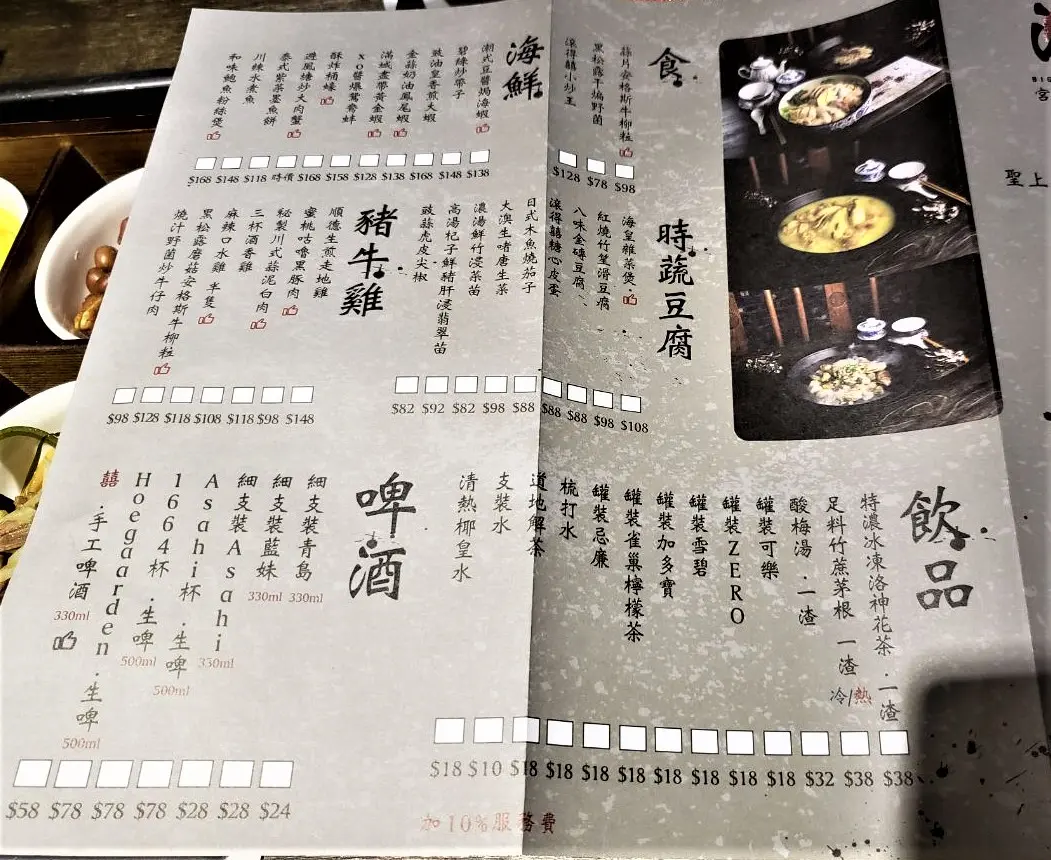 食
蒜片安格斯牛柳粒
黑松露干煸野菌
滾得囍小炒王
$128 $78 $98
海鮮
潮式豆醬焗海蝦
碧綠炒帶子
豉油皇香煎大蝦
金蒜奶油鳳尾蝦
滿城盡帶黃金蝦
xo醬爆鴛鴦蚌
酥炸桶蠔
避風塘炒大肉蟹
泰式紫菜墨魚餅
川辣水煮魚
和味鮑魚粉絲煲
$168 $148 $118 時價 $168 $158 $128 $138 $168 $148 $138
時蔬豆腐
海皇雜菜煲
紅燒竹笙滑豆腐
八味金磚豆腐
滾得囍糖心皮蛋
日式木魚燒茄子
大澳生啫唐生菜
濃湯鮮竹浸菜苗
高湯杞子鮮豬肝浸翡翠苗
豉蒜虎皮尖椒
$82 $92 $82 $98 $88 $88 $88 $98 $108
豬牛雞
順德生煎走地雞
蜜桃咕嚕黑豚肉
秘製川式蒜泥白肉
三杯酒香雞
麻辣口水雞 半隻
黑松露磨菇安格斯牛柳粒
燒汁野菌炒牛仔肉
$98 $128 $118 $108 $118 $98 $148
飲品
特濃冰凍洛神花茶·一渣
足料竹蔗茅根 一渣 冷/熱
酸梅湯·一渣
罐裝可樂
罐裝ZERO
罐裝雪碧
罐裝加多寶
罐裝雀巢檸檬茶
罐裝忌廉
梳打水
道地解茶
支裝水
清熱椰皇水
$18 $10 $18 $18 $18 $18 $18 $18 $18 $18 $32 $38 $38
啤酒
細支裝青島 330ml
細支裝藍妹 330ml
細支裝Asahi 330ml
Asahi杯·生啤 500ml
1664杯·生啤 500ml
Hoegaarden·生啤 500ml
囍·手工啤酒 330ml
$58 $78 $78 $78 $28 $28 $24
加10%服務費
聖上
宮
BIG